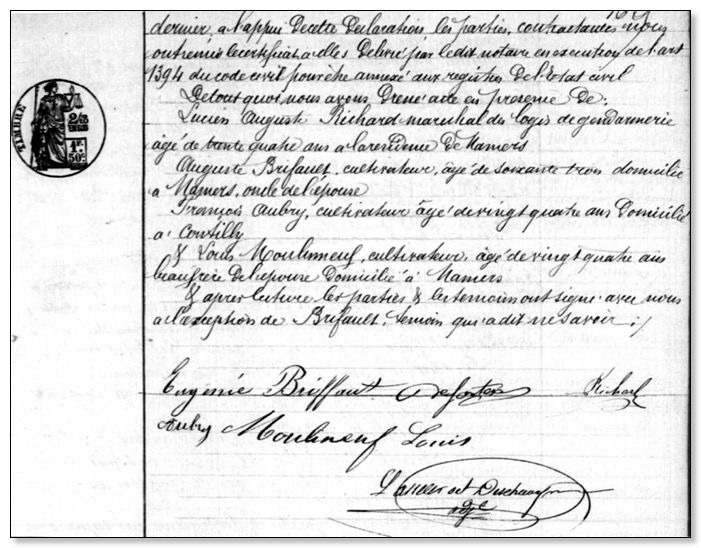 dernier, a l'appui de cette declaration, les parties contractantes nous
ont remis le certificat a elles délivré par le dit notaire en execution de l'art
1394 du code civil pour être annexé aux registres de l'état civil
De tout quoi, nous avons dressé acte en presence de:
Lucien Auguste Richard marechal des logis de gendarmerie
âgé de trente quatre ans a la residence de Mamers
Auguste Brifault, cultivateur, âgé de soixante trois domicilié
a Mamers, oncle de l'epouse
François Aubry, cultivateur âgé de vingt quatre ans Domicilié
a Contilly
& Louis Moulinneuf, cultivateur, âgé de vingt quatre ans
beau frere de l'epouse Domicilié à Mamers
& apres lecture les parties & les temoins ont signé avec nous
a l'exception de Brifault, temoin qui a dit ne savoir ;/
TIMBRE
2/10
EN SUS
1F.
50c.
Eugénie Briffault Richard
Aubry Moulinneuf Louis
adj.